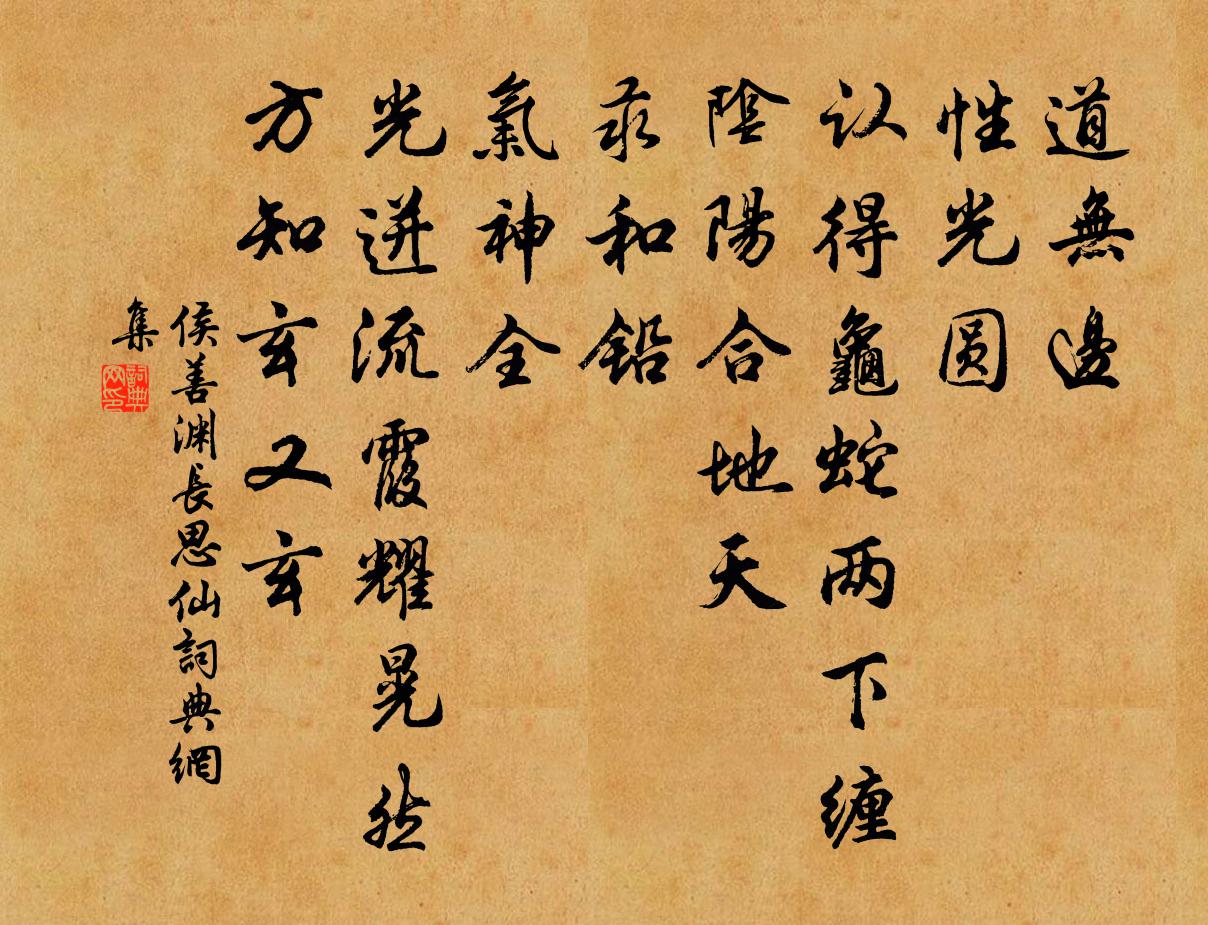 道無邊
性光圆
认得龜蛇两下缠
陰陽合地天
汞和鉛
氣神全
光迸流霞耀晃然
方知玄又玄
侯善渊長思仙詞典網
集
詞典网印